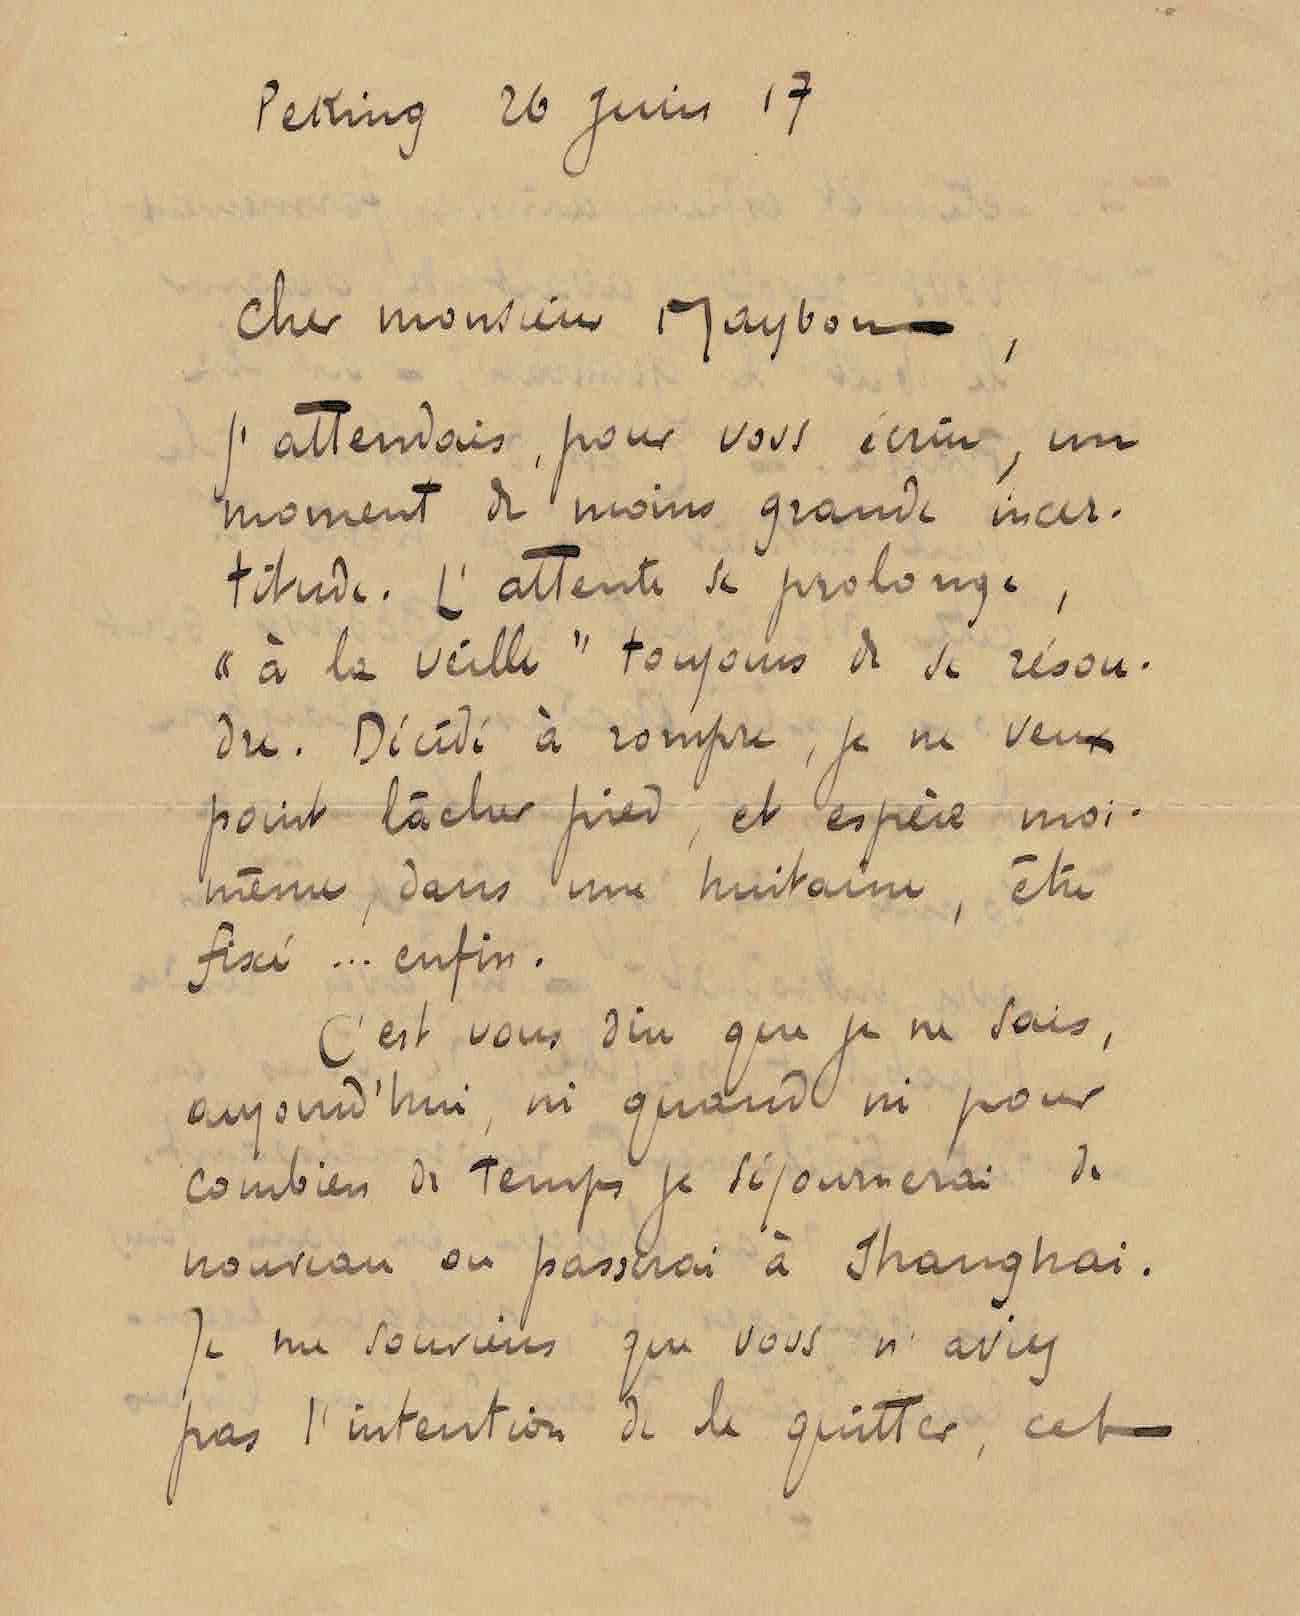 Peking 26 Juin 17
Cher monsieur Maybon,
J'attendais, pour vous écrire, un
moment de moins grande incer-
titude. L'attente se prolonge,
"à la veille" toujours de se résou-
dre. Décidé à rompre, je ne veux
point lâcher pied, et espère moi-
même, dans une huitaine, être
fixé ... enfin.
C'est vous dire que je ne sais,
aujourd'hui, ni quand ni pour
combien de temps je séjournerai de
nouveau ou passerai à Shanghai.
Je me souviens que vous n'aviez
pas l'intention de le quitter, cet